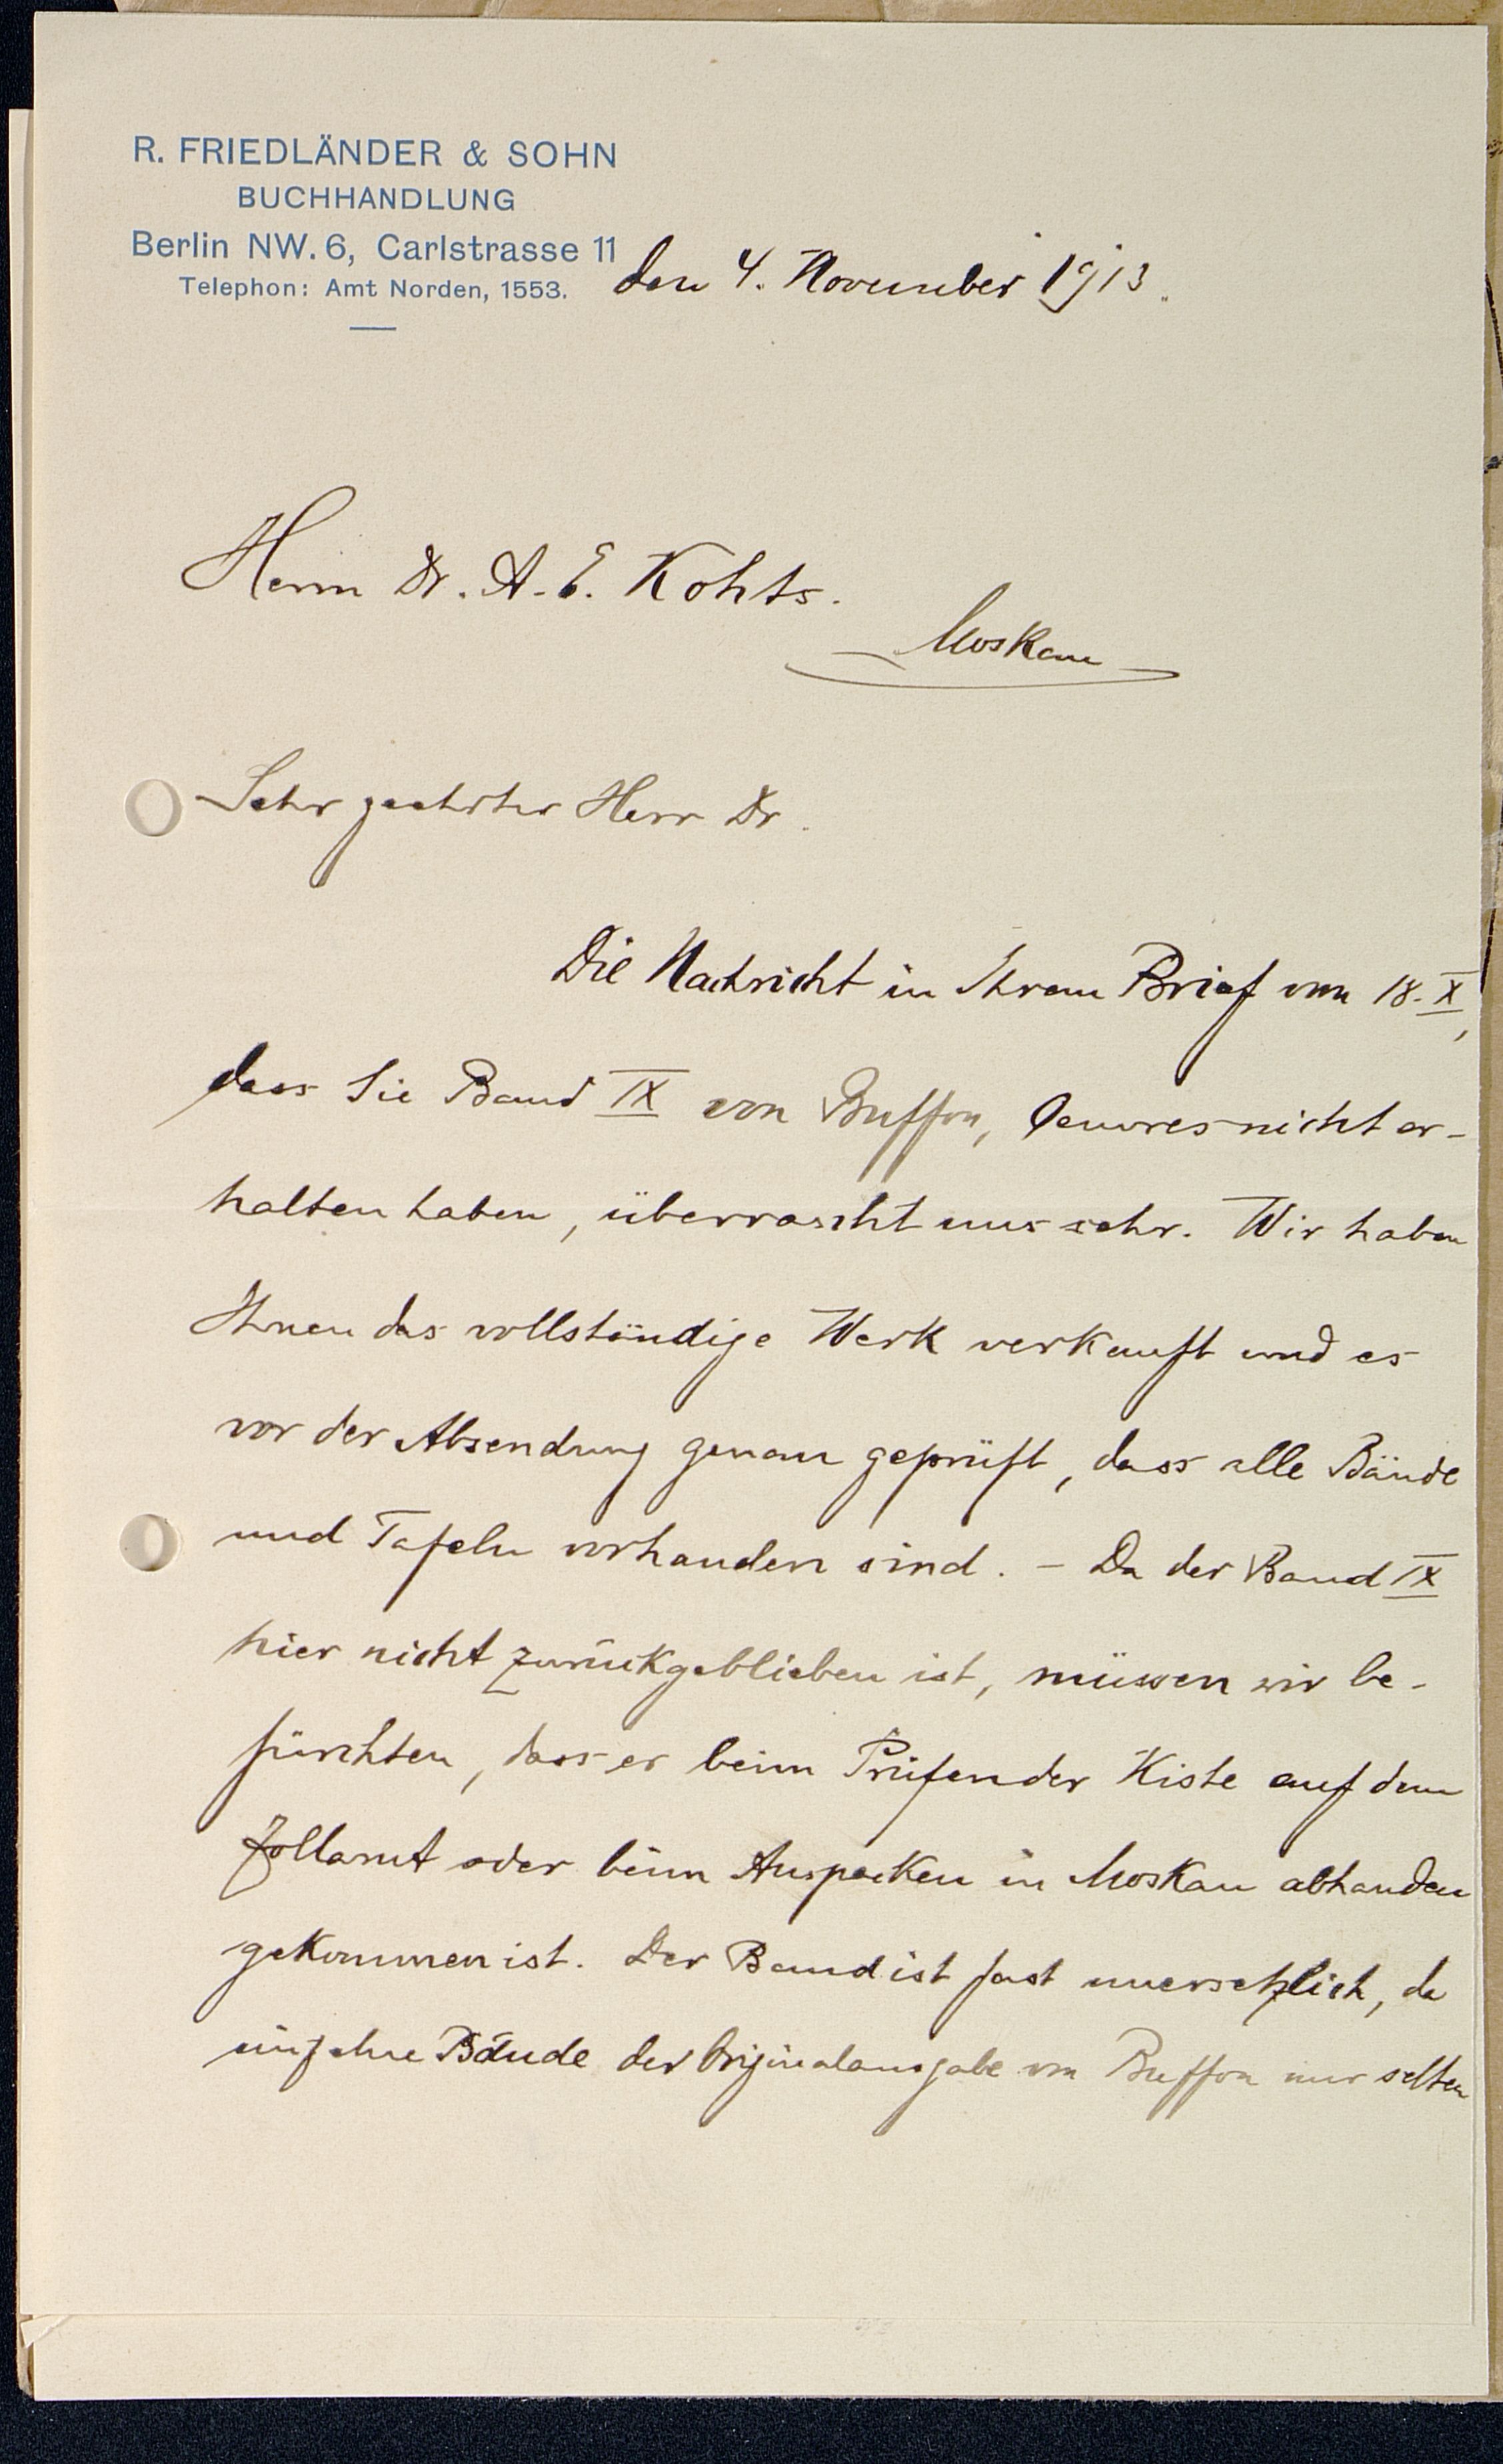 R. FRIEDLÄNDER & SOHN
BUCHHANDLUNG
Berlin NW. 6, Carlstrasse 11
Telephon: Amt Norden, 1553.
den 4. November 1913.
Herrn Dr. A. E. Kohts.
Moskau
Sehr geehrter Herr Dr.
Die Nachricht in Ihrem Brief vom 18. X,
dass Sie Band IX von Buffon, Oeuvres nicht er-
halten haben, überrascht uns sehr. Wir haben
Ihnen das vollständige Werk verkauft und es
vor der Absendung genau geprüft, dass alle Bände
und Tafeln vorhanden sind. – Da der Band IX
hier nicht zurückgeblieben ist, müssen wir be-
fürchten, dass er beim Prüfen der Kiste auf dem
Zollamt oder beim Auspacken in Moskau abhanden
gekommen ist. Der Band ist fast unersetzlich, da
einzelne Bände der Originalausgabe von Buffon nur selten